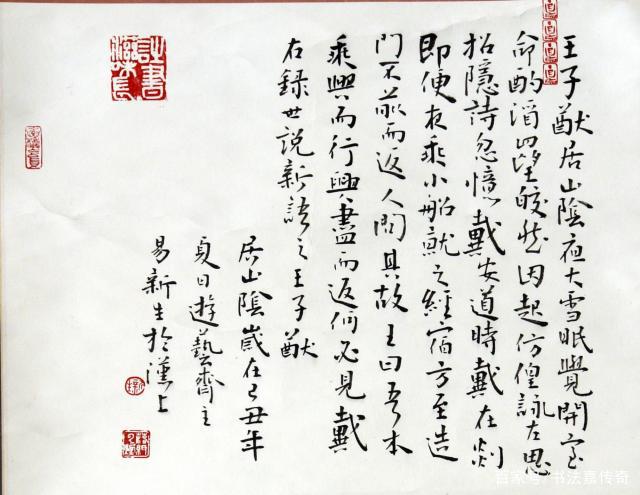 王子猷居山陰夜大雪眠覺開室
命酌酒四望皎然因起仿偟詠左思
招隱詩忽憶戴安道時戴在剡
即便夜乘小船就之經宿方至造
門不前而返人問其故王曰吾本
乘興而行興盡而返何必見戴
右録世說新語之王子猷
居山陰歲在己丑年
夏日遊藝齋主
易新生於漢上
詩書滋味長
百家号/书法嘉传奇